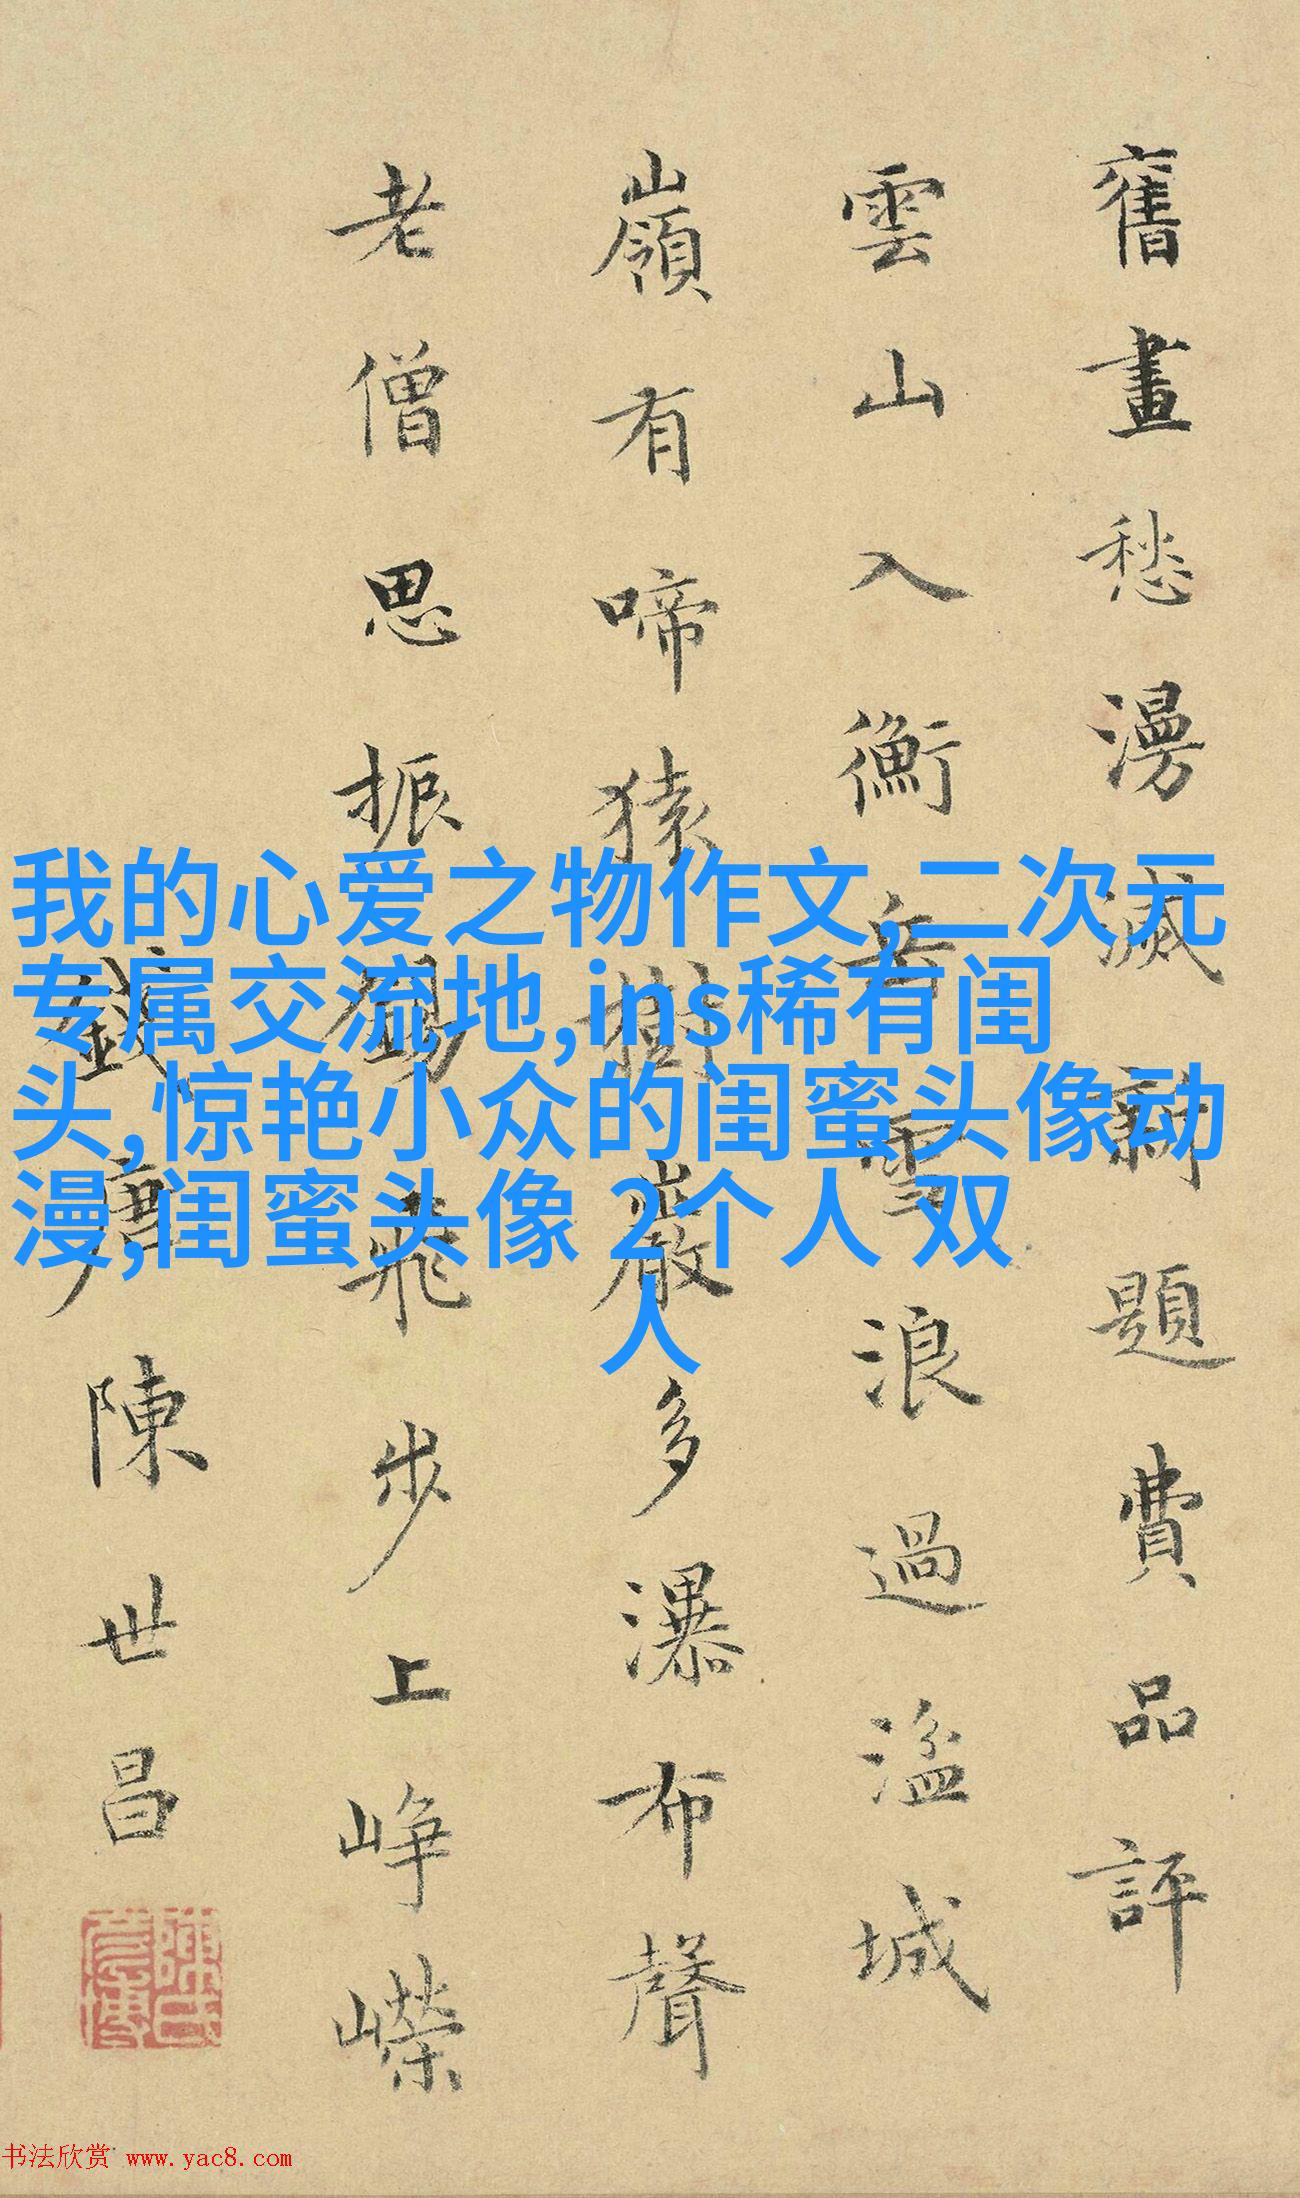 舊畫愁漫滅新題費品評
雲山入衡岳雪浪過湓城
嶺有啼猿樹巖多瀑布聲
老僧思振錫飛步上崢嶸
錢唐陳世昌
我的心爱之物作文,二次元
专属交流地,ins稀有闺
头,惊艳小众的闺蜜头像动
漫,闺蜜头像 2个人 双
人
书法欣赏 www.yac8.com